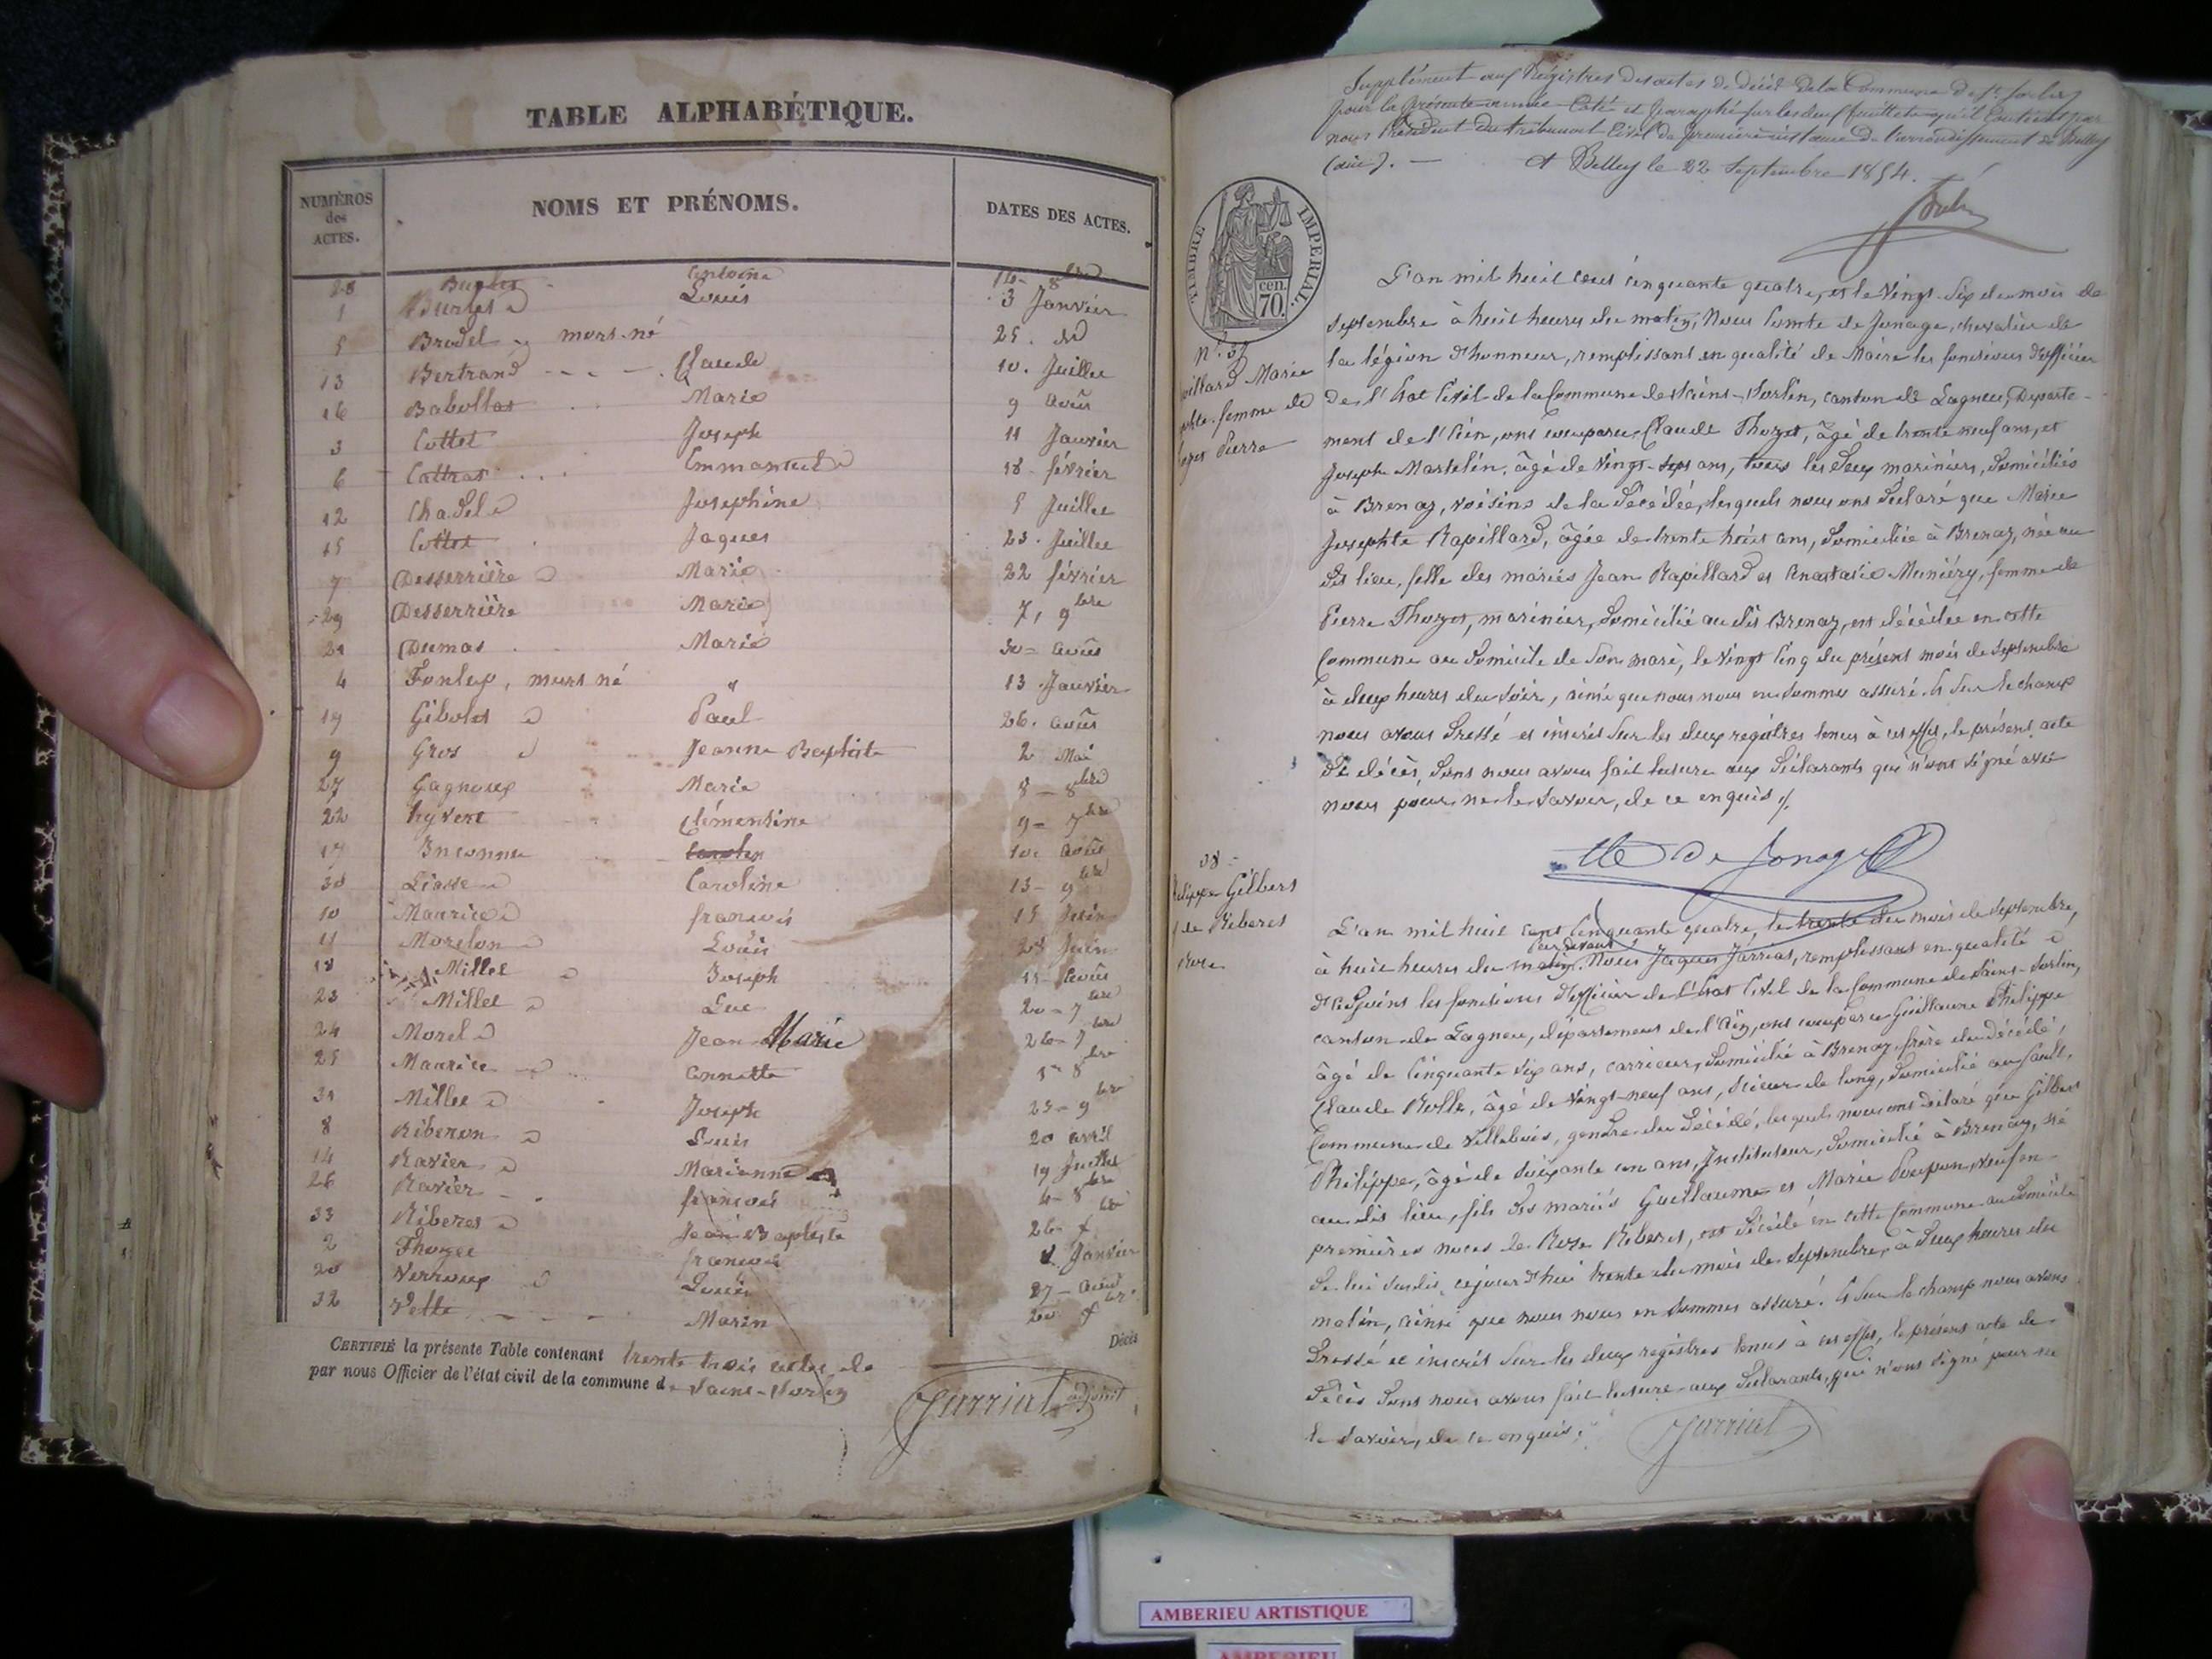 TABLE ALPHABÉTIQUE.
NUMÉROS des ACTES. NOMS ET PRÉNOMS. DATES DES ACTES.
28 Antoine 14 - 8bre
1 Louis 3 Janvier
5 Brudel mort-né 25. do
13 Bertrand Claude 10. Juillet
16 Marie 9 Août
3 Cottet Joseph 11 Janvier
6 Cattras Emmanuel 18 - février
12 Chadel Josephine 5 Juillet
15 Cottet Jaques 23. Juillet
7 Desserrière Marie 22 février
29 Desserrière Marie 7, 9bre
21 Dumas Marie 30 = Août
4 Fonlup, mort né " 13. Janvier
19 Paul 26. Août
9 Gros Jeanne Baptiste 2 Mai
27 Gagnoux Marie 8 - 8bre
22 hyvert Clémentine 9 = 7bre
17 Inconnu 10. Août
30 Liasse Caroline 13 - 9bre
10 Maurice francois 15 Juin
11 Morelon Louis 28 Juin
18 Millet Joseph 11 - Août
23 Millet Luc 20 - 7bre
24 Morel Jean Marie 26 - 7bre
25 Maurice Annette 1er 8bre
31 Millet Joseph 25 - 9bre
8 Riberon Louis 20 avril
14 Ravier Marianne 19 Juillet
26 Ravier francois 4 - 8bre
33 Riberes Jean Baptiste 26
2 Thozet francois Janvier
20 Verroux Louis 27 - Août
32 Vette Marin 20
Décès
CERTIFIÉ la présente Table contenant trente trois actes de
par nous Officier de l'état civil de la commune de Saint-Sorlin
Jarrial adjoint
Supplément aux Régistres des actes de Décès de la Commune de St Sorlin
pour la présente année Coté et paraphé sur les deux feuillets qu'il Contient par
nous Président du tribunal Civil de première instance de l'arrondissement de Belley
(ain). — A Belley le 22 Septembre 1854.
TIMBRE IMPERIAL.
cen. 70.
L'an mil huit cent cinquante quatre, et le Vingt-six du mois de
Septembre à huit heures du matin, Nous Comte de Jonage, chevalier de
la légion d'honneur, remplissant en qualité de Maire les fonctions d'officier
de l'Etat Civil de la Commune de Saint-Sorlin, canton de Lagnieu, Departe-
ment de l'Ain, ont comparu Claude Thozet, âgé de trente neuf ans, et
Joseph Martelin, âgé de Vingt-sept ans, tous les deux mariniers, domiciliés
à Brenaz, voisins de la décédée, lesquels nous ont déclaré que Marie
Josephte Rapillard, âgée de trente huit ans, domiciliée à Brenaz, née au
dit lieu, fille des mariés Jean Rapillard et Anastasie Muniéry, femme de
Pierre Thozet, marinier, domicilié au dit Brenaz, est décédée en cette
Commune au domicile de son mari, le Vingt Cinq du présent mois de Septembre
à deux heures du soir, ainsi que nous nous en sommes assuré. Et sur le champ
nous avons dressé et inscrit sur les deux régistres tenus à cet effet, le présent acte
de décès, dont nous avons fait lecture aux déclarants qui n'ont signé avec
nous pour ne le savoir, de ce enquis ./.
n°. 37
Marie
femme de
Pierre
Cte De Jonage
38
Gilbert
de Riberet
L'an mil huit cent Cinquante quatre, le trente du mois de Septembre,
à huit heures du matin, par devant Nous Jaques Jarrias, remplissant en qualité
d'adjoint les fonctions d'officier de l'état Civil de la Commune de Saint-Sorlin,
canton de Lagnieu, département de l'Ain, ont comparu Guillaume Philippe
âgé de Cinquante six ans, carrieur, domicilié à Brenaz frère du décédé,
Claude Rolle, âgé de Vingt-neuf ans, scieur de long, domicilié au Sault,
Commune de Villebois, gendre du décédé, lesquels nous ont déclaré que Gilbert
Philippe, âgé de soixante un ans, Instituteur, domicilié à Brenaz, né
au dit lieu, fils des mariés Guillaume et Marie Poupon, veuf en
premières noces de Roze Riberet, est décédé en cette Commune au domicile
de lui susdit, cejourd'hui trente du mois de Septembre, à deux heures du
matin, ainsi que nous nous en sommes assuré. Et sur le champ nous avons
dressé et inscrit sur les deux régistres tenus à cet effet, le présent acte de
décès dont nous avons fait lecture aux déclarants, qui n'ont signé pour ne
le savoir, de ce enquis.
Jarrial
AMBERIEU ARTISTIQUE
AMBERIEU